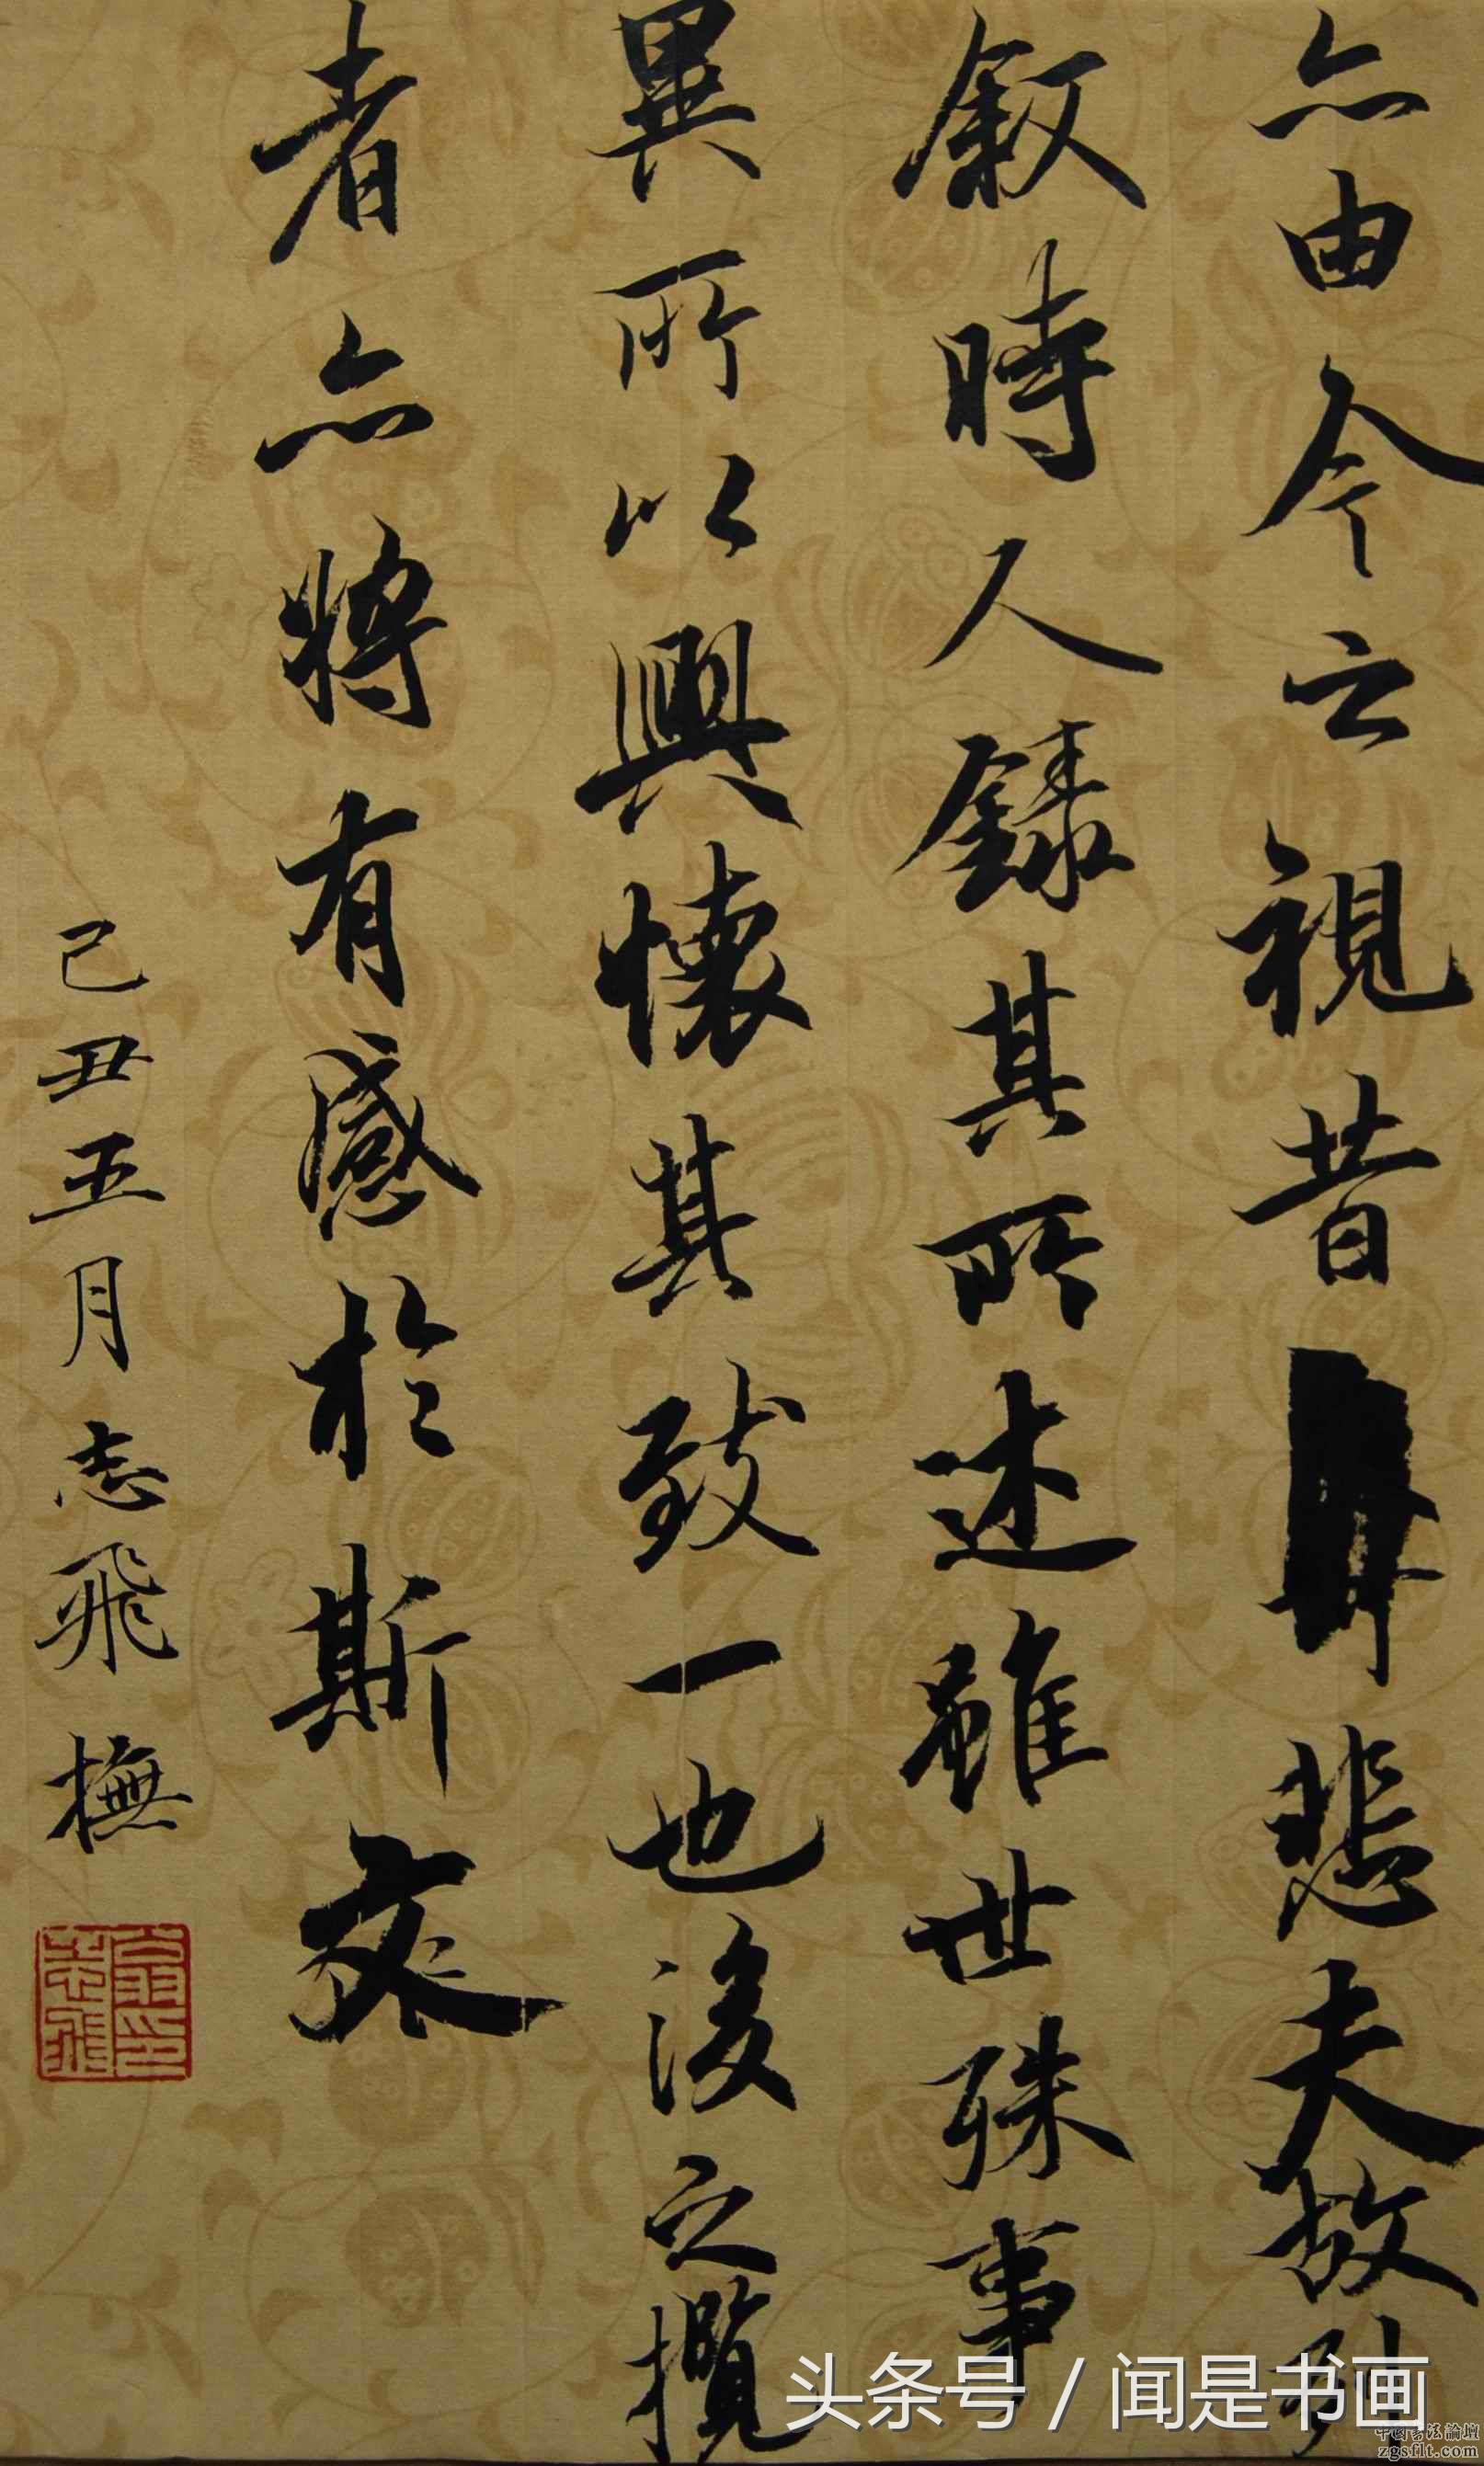 亦由今之視昔悲夫故列
敘時人錄其所述雖世殊事
異所以興懷其致一也後之攬
者亦將有感於斯文
己丑五月志飛撫
头条号 / 闻是书画
中國書法論壇
zgsflt.com